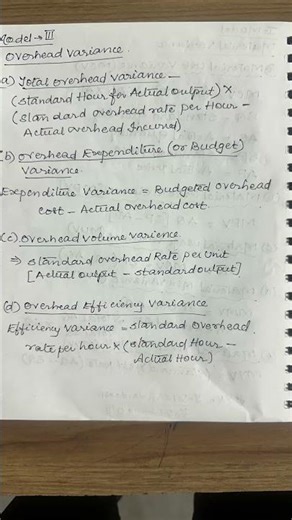 Model → III
Overhead Variance.
a) Total overhead Variance —
(Standard Hour for Actual Output) ×
(Standard overhead rate per Hour —
Actual overhead Incured)
(b) Overhead Expenditure (Or Budget)
Variance
Expenditure Variance = Budgeted overhead
cost — Actual overhead cost
(c) Overhead Volume Varience
⇒ Standard overhead Rate per Unit
[Actual output — standard output]
(d) Overhead Efficiency Variance
Efficiency Variance = Standard Overhead
rate per hour × (Standard Hour —
Actual Hour)